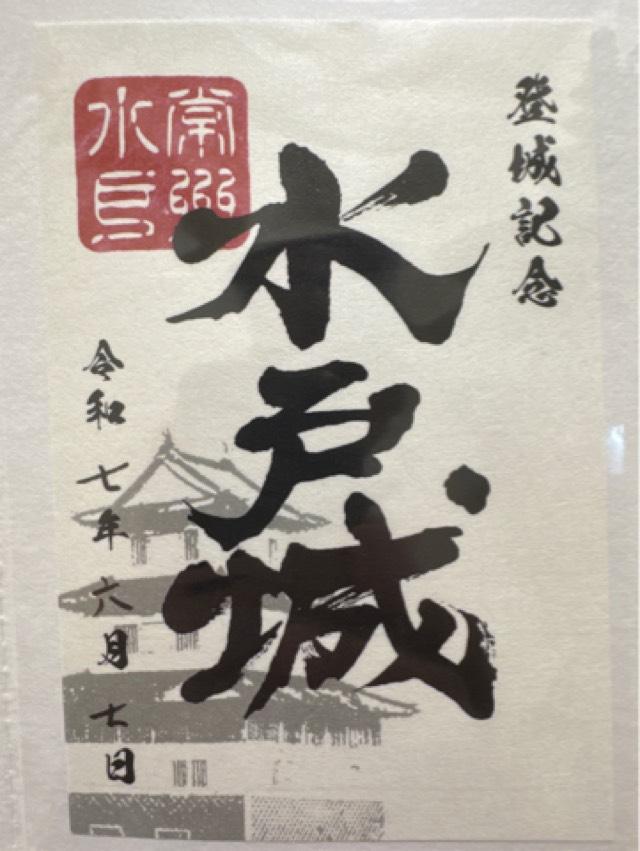 登城記念
水戸城
常州
水戸
令和七年六月七日